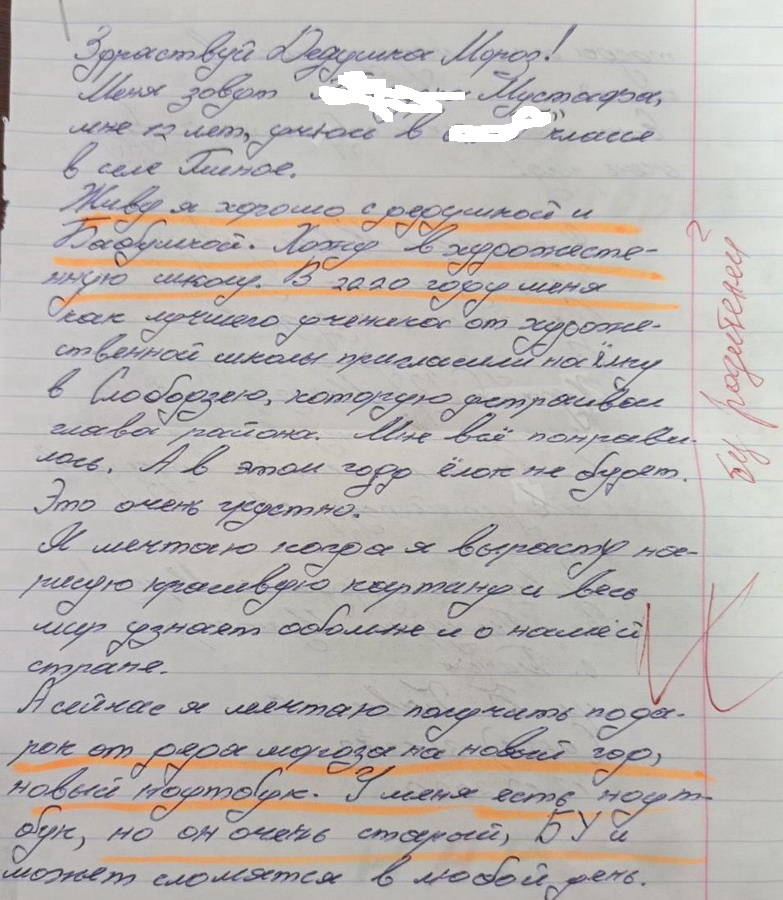 Здраствуй Дедушка Мороз!
Меня зовут Мустафа,
мне 12 лет, учюсь в классе
в селе Глиное.
Живу я хорошо с дедушкой и
Бабушкой. Хожу в художесте-
нную школу. В 2020 году меня
как лучшего ученика от художе-
ственной школы пригласили на ёлку
в Слободзею, которую устраивал
глава района. Мне всё понрави-
лось. А в этом году ёлок не будет.
Это очень грустно.
Я мечтаю когда я вырасту на-
рисую красивую картину и весь
мир узнает обо мне и о нашей
стране.
А сейчас я мечтаю получить пода-
рок от деда мороза на новый год,
новый ноутбук. У меня есть ноут-
бук, но он очень старый, БУ и
может сломатся в любой день.
родителей?